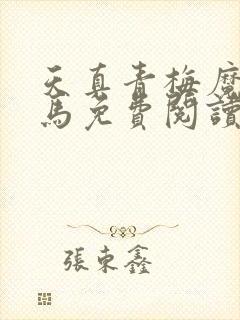 天真青梅魔
馬免費閱讀
張東鑫